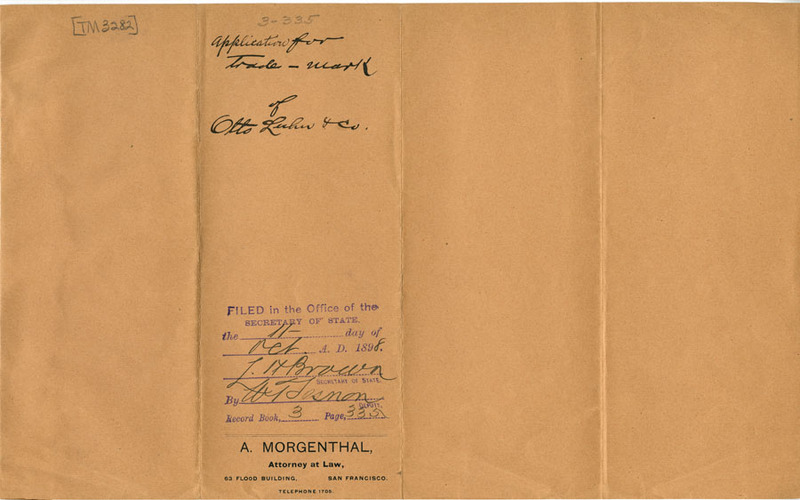 [TM3282]
3-335
Application for
trade - mark
of
Otto Luhn & Co.
FILED in the Office of the
SECRETARY OF STATE.
the 11- day of
Oct. A. D. 1898.
L. H Brown
SECRETARY OF STATE.
By
DEPUTY.
Record Book, 3 Page, 335
A. MORGENTHAL,
Attorney at Law,
63 FLOOD BUILDING, SAN FRANCISCO.
TELEPHONE 1759.